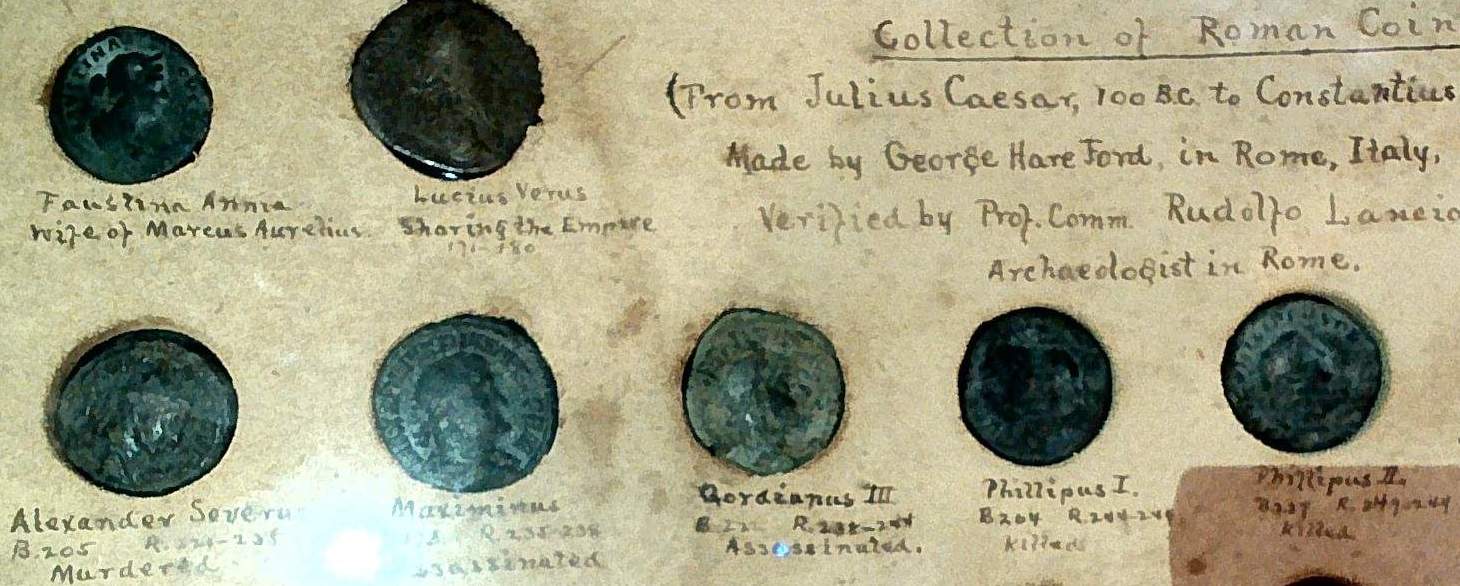 Collection of Roman Coin
(From Julius Caesar, 100 B.C. to Constantius
Made by George Hare Ford, in Rome, Italy,
Verified by Prof. Comm. Rudolfo Lancia
Archaeologist in Rome.
Faustina Annia
wife of Marcus Aurelius.
Lucius Verus
Sharing the Empire
Alexander Severu
B.205
Murdered
Maximinus
R.235-238
assassinated
Gordianus III
R.238-244
Assassinated.
Phillipus I.
B204 R.244-249
Killed
Phillipus II.
Killed